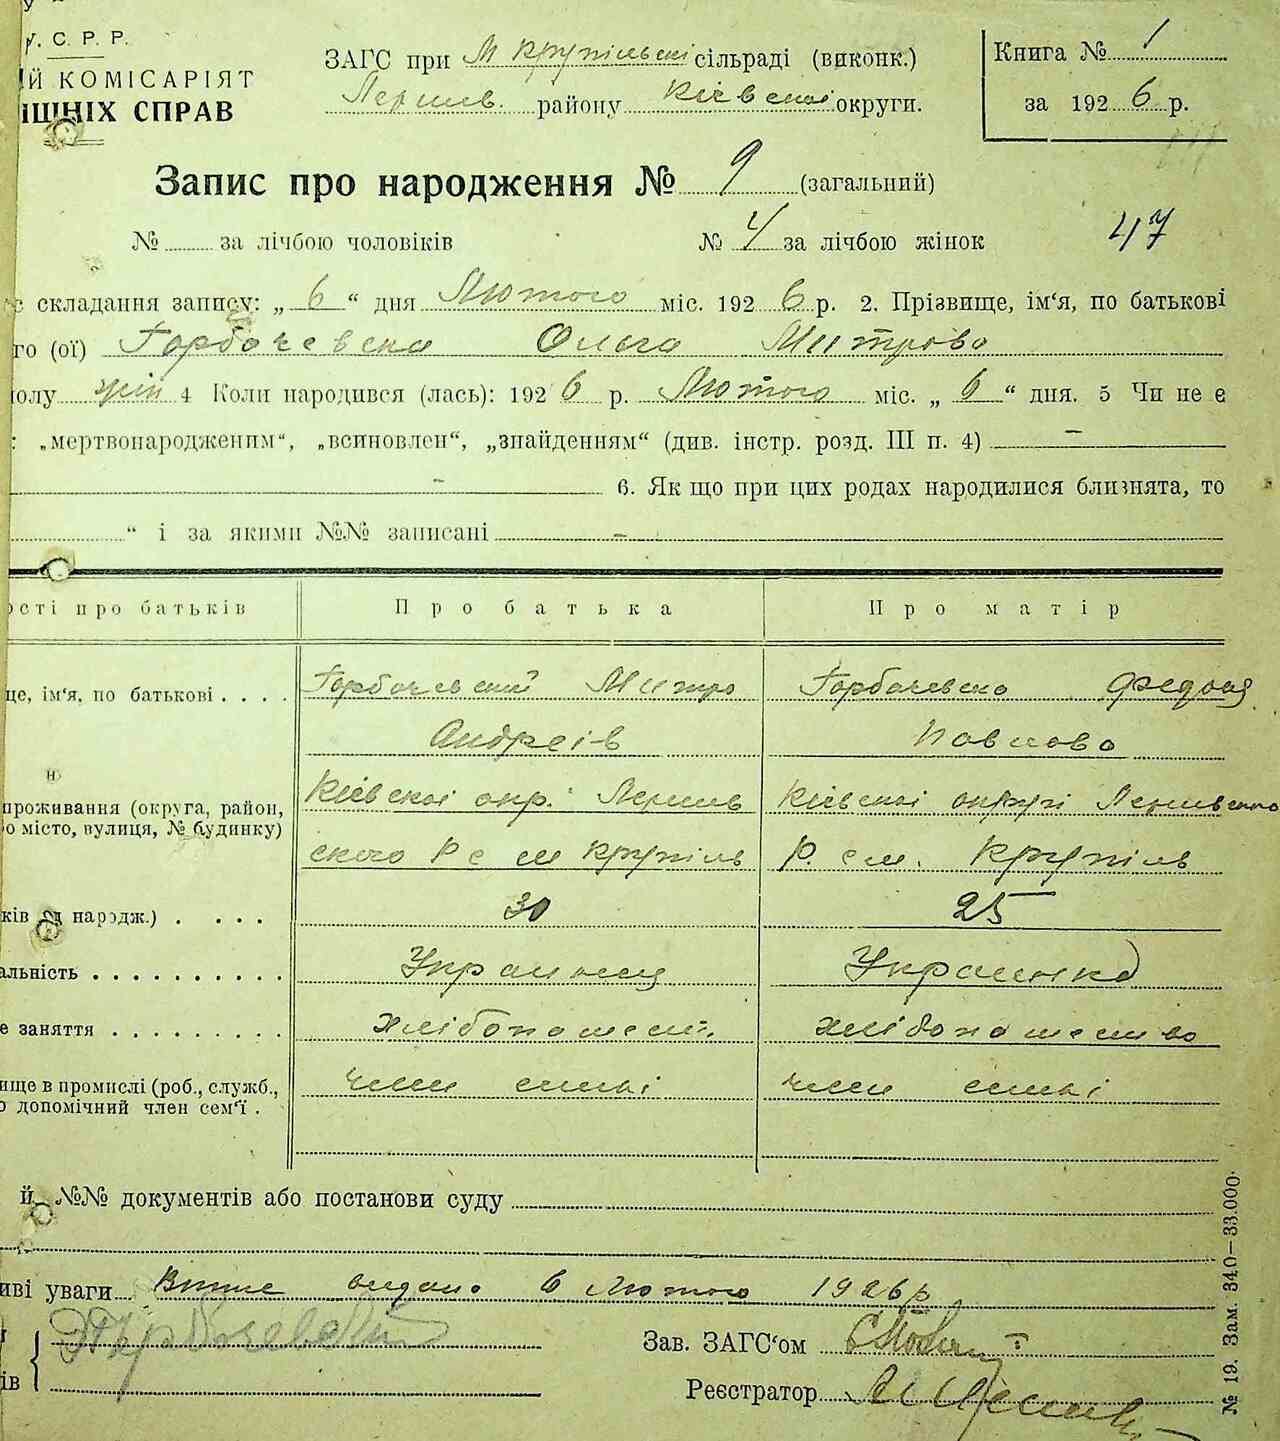 С. Р. Р.
Й КОМІСАРІЯТ
ІШНІХ СПРАВ
ЗАГС при М Крупільскі сільраді (виконк.)
району Кіевскоі округи.
Книга № 1
за 1926 р.
Запис про народження № 9 (загальний)
№ за лічбою чоловіків
№ 4 за лічбою жінок
47
складання запису: „ 6 “ дня Лютого міс. 1926 р. 2. Прізвище, ім‘я, по батькові
го (ої) Горбачевска Ольга Митрова
олу жін 4 Коли народився (лась): 1926 р. Лютого міс. „ 6 “ дня. 5 Чи не є
: „мертвонародженим“, „всиновлен“, „знайденням“ (див. інстр. розд. III п. 4) -
- 6. Як що при цих родах народилися близнята, то
“ і за якими №№ записані -
ості про батьків
Про батька
Про матір
це, ім‘я, по батькові . . . .
Горбачевский Митро
Андреів
Горбачевска Федося
Павлова
проживання (округа, район,
о місто, вулиця, № будинку)
Кіевскоі окр.
ского Р с м Крупіль
Кіевскоі округі
Р. с м. Крупіль
ків від народж.) . . . .
30
25
альність . . . . . . . . . .
Украинец
Украинка
е заняття . . . . . . . . .
хлібопашест.
хлібопашество
ище в промислі (роб., служб.,
о допомічний член сем‘ї .
член семьі
член семьі
й №№ документів або постанови суду
иві уваги Витяг видано 6 Лютого 1926 р
Горбачевский
ів
Зав. ЗАГС‘ом
Реєстратор
№ 19. Зам. 340—33.000.